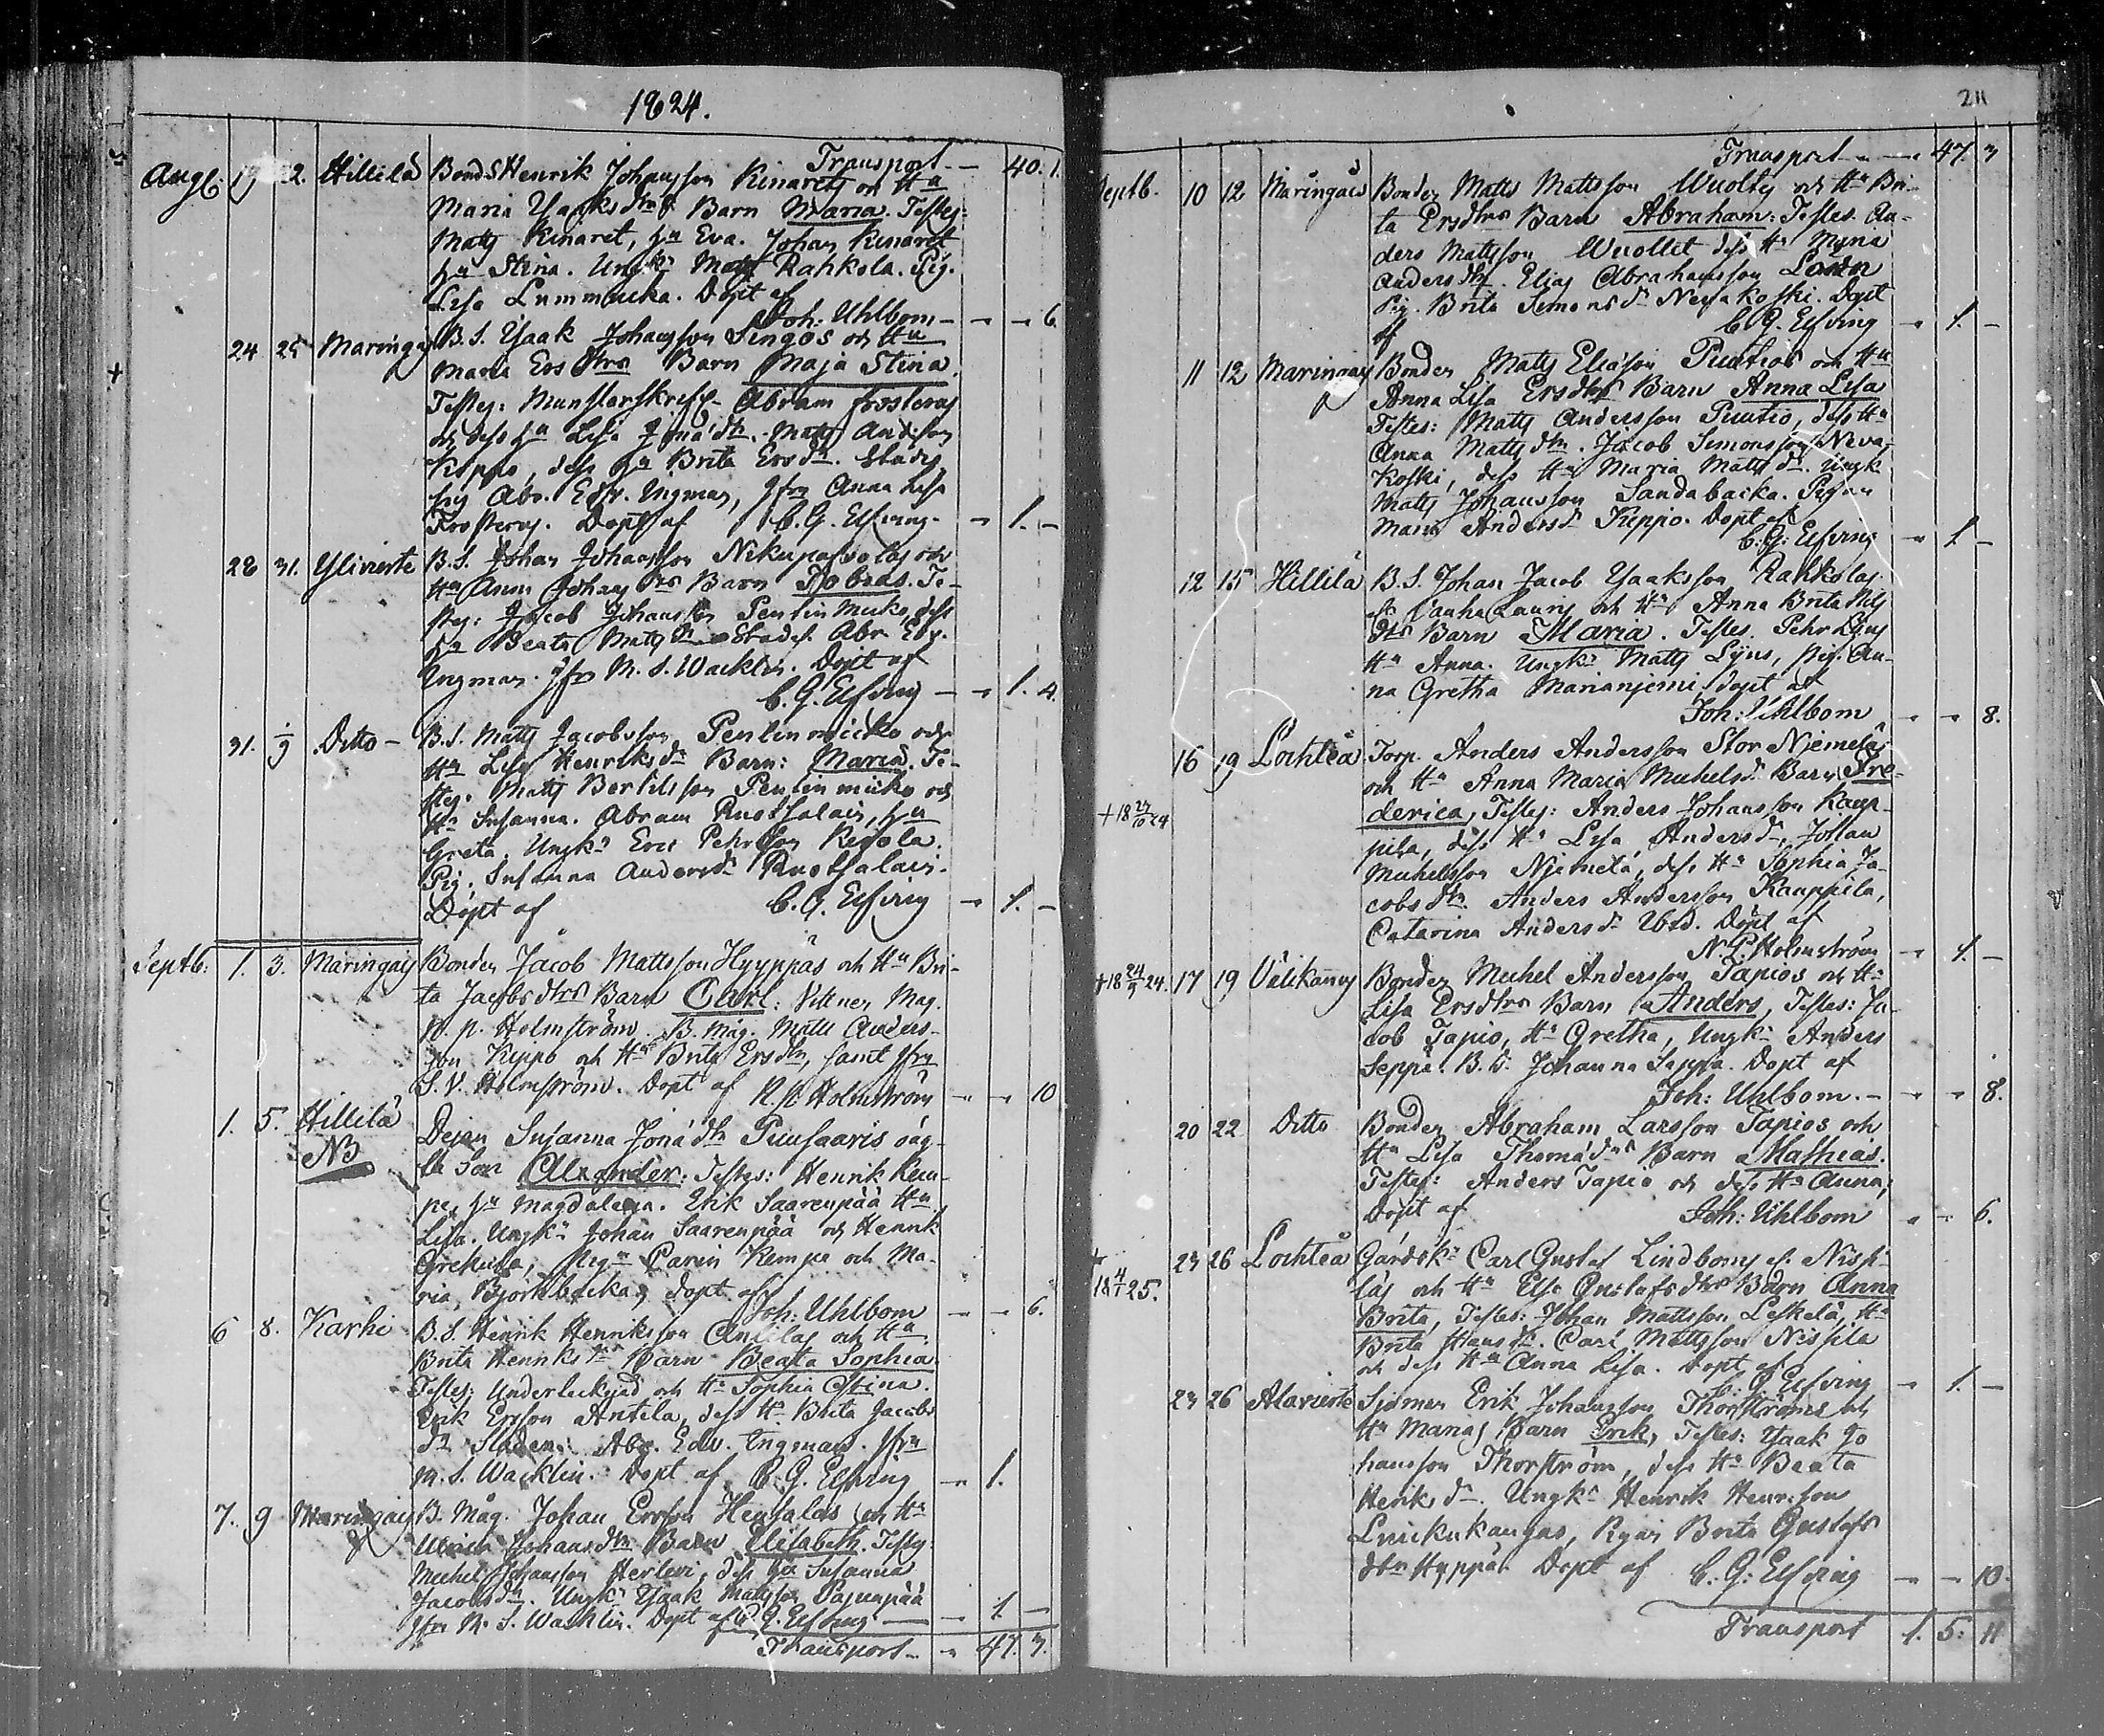 1824.
Transport — 40. 1.
Aug. 19 22. Hillilä Bond S Henrik Johansson Kinarets och Hu
Maria Yaaksdtrs Barn Maria. Testes:
Matts Kinaret, hu Eva. Johan Kinaret
hu Stina. Ungk: Matts Rahkola. Pig.
Lisa Lummukka. Döpt af
Joh: Uhlbom — — 6.
24 25 Maringais B. S. Yaak Johansson Singos och Hu
Maria Ersdtrs Barn Maja Stina.
Testes: Munsterskrifv. Abram Frosterus
och dess hu Lisa Jonædtr. Matts Andersson
Keppo, dess hu Brita Ersdr. Studer.
Abr. Edv. Ingman, Jfru Anna Lisa
Frosterus. Döpt af C. G. Elfving — 1. —
28 31. Ylivieste B. S. Johan Johansson och
Hu Anna Johansdtrs Barn Tobias. Te-
stes: Jacob Johansson Pentinmicko, dess
hu Beata Mattsdr Studes. Abr. Edv.
Ingman. Jfru M. S. Wacklin. Döpt af
C. G. Elfving — 1. 4.
31. 1/9 Ditto — B. S. Matts Jacobsson Pentinmicko och
Hu Lisa Henriksdrs Barn: Maria. Te-
stes. Matts Bertilsson Pentinmicko och
Hu Susanna. Abram Ruotsalain, hu
Greta. Ungk: Eric Pehrsson Resola.
Pig. Susanna Andersdr Ruotsalain.
Döpt af C. G. Elfving — 1. —
Septb: 1. 3. Maringais Bonden Jacob Mattsson Hyyppäs och Hu Bri-
ta Jacobsdtrs Barn Carl: Vittnen Mag.
N. P. Holmström. B. Måg. Matts Anders-
son Keppo och Hu Brita Ersdtr, samt Jfru
S. V. Holmström. Döpt af N. P. Holmström — — 10
1. 5. Hillilä Dejan Susanna Jonædtr Puusaaris oäg-
NB ta Son Alexander: Testes: Henrik Kem-
pe, hu Magdalena. Erik Saarenpää Hu
Lisa. Ungk: Johan Saarenpää och Henrik
Grekula, Pigu Carin Kempe och Ma-
ria Björkbacka, döpt af
Joh: Uhlbom — — 6.
6 8. Karhi B. S. Henrik Henriksson Antilas och Hu
Brita Henriksdrs Barn Beata Sophia.
Testes: Underläckgad och Hu Sophia Stina.
Erik Ersson Antila, dess Hu Brita Jacobs
dr Studen. Abr. Edv. Ingman. Jfru
M. S. Wacklin. Döpt af C. G. Elfving — 1.
7. 9 Maringais B. Måg. Johan Ersson Hentalas och Hu
Ulrica Johansdtrs Barn Elisabeth. Testes
Michel Johansson Herlevi, dess hu Susanna
Jacobsdtr. Ungk: Yaak Mattsson Pajunpää
Jfru M. S. Wacklin. Döpt af C. G. Elfving — 1. —
Transport — 47. 3.
211
Transport — — 47. 3
Septb. 10 12 Maringais Bonden Matts Mattsson Wuolles och Hu Bri-
ta Ersdtrs Barn Abraham: Testes. An-
ders Mattsson Wuollet dess Hu Maria
Andersdtr. Elias Abrahamsson
Pig. Brita Simonsdr Nevakoski. Döpt
af C. G. Elfving — 1. —
11 12 Maringais Bonden Matts Eliasson Puutios och Hu
Anna Lisa Ersdtrs Barn Anna Lisa
Testes: Matts Andersson Puutio, dess Hu
Anna Mattsdtr. Jacob Simonsson Neva-
koski, dess Hu Maria Mattsdr. Ungk
Matts Johansson Sandabacka. Pigan
Maria Andersdr Keppo. Döpt af
C. G: Elfving — 1. —
12 15 Hillilä B. S. Johan Jacob Yaaksson Rahkolas
och Hu Anna Brita Nils
dtrs Barn Maria. Testes. Pehr Lyns
Hu Anna. Ungk: Matts Lyns, Pig. An-
na Gretha Marianjemi, döpt af
Joh: Uhlbom — — 8.
16 19 Lochteå Torp. Anders Andersson Stor Niemeläs
och Hu Anna Maria Michelsdr Barn Fre-
+18 27/10 24 derica, Testes: Anders Johansson Kaup-
pila, dess Hu Lisa Andersdr, Johan
Michelsson Njemelä, dess Hu Sophia Ja-
cobsdtr. Anders Andersson Kauppila,
Catarina Andersdr Ibid. Döpt af
N. P. Holmström — 1. —
+18 24/9 24. 17 19 Välikannus Bonden Michel Andersson Tapios och Hu
Lisa Ersdtrs Barn Anders, Testes: Ja-
cob Tapio, Hu Gretha, Ungk: Anders
Seppä. B. D. Johanna Seppä. Döpt af
Joh: Uhlbom. — — 8.
20 22 Ditto Bonden Abraham Larsson Tapios och
Hu Lisa Thomædrs Barn Mathias.
Testes: Anders Tapio och dess Hu Anna,
Döpt af Joh: Uhlbom — — 6.
+ 23 26 Lochteå Gårdsk: Carl Gustaf Lindboms el. Nissi-
18 4/1 25. läs och Hu Elsa Gustafsdtrs Barn Anna
Brita, Testes: Johan Mattsson Leskelä, Hu
Brita Hansdtr. Carl Mattsson Nissila
och dess Hu Anna Lisa. Döpt af
C. G Elfving — 1. —
23 26 Alavieste Sjöman Erik Johansson Thorströms och
Hu Marias Barn Erik, Testes: Yaak Jo
hansson Thorström, dess Hu Beata
Heriksdr. Ungk: Henrik Henrisson
Luickukangas, Pigan Brita Gustafs
dtr Hyppä. Döpt af C. G: Elfving — — 10.
Transport 1. 5: 11